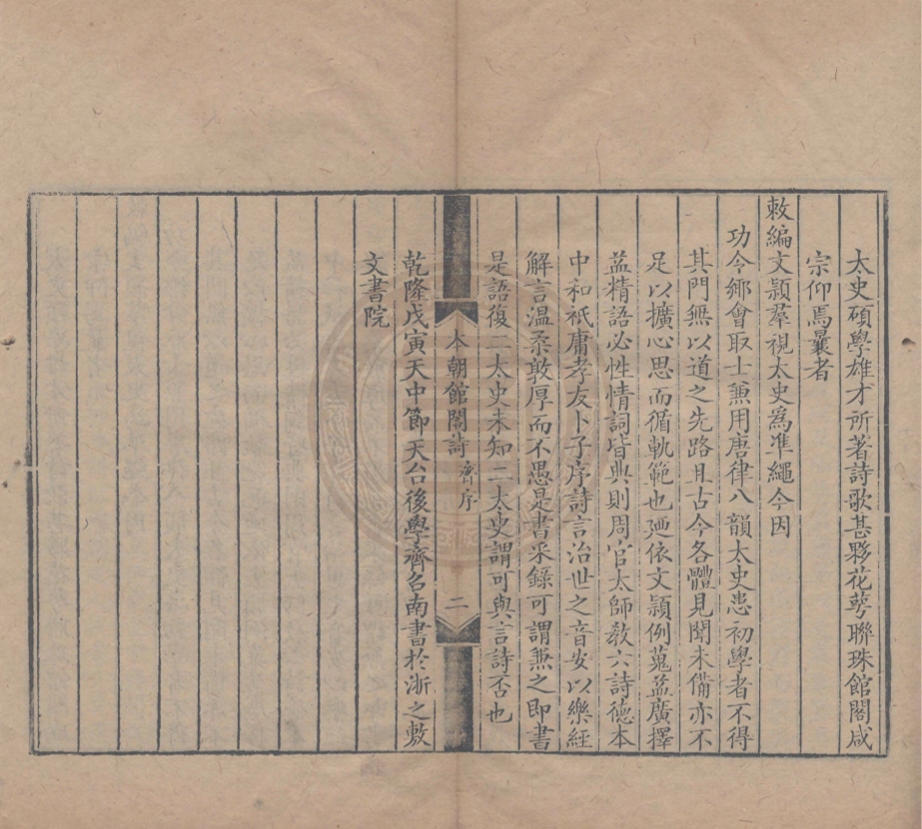 太史碩學雄才所著詩歌甚夥花萼聯珠館閣咸
宗仰焉曩者
敕編文穎羣視太史爲準繩今因
功令鄉會取士兼用唐律八韻太史恐初學者不得
其門無以道之先路且古今各體見聞未備亦不
足以擴心思而循軌範也廼依文穎例蒐益廣擇
益精語必性情詞皆典則周官太師敎六詩德本
中和祇庸孝友卜子序詩言治世之音安以樂經
解言温柔敦厚而不愚是書采錄可謂兼之即書
是語復二太史未知二太史謂可與言詩否也
本朝館閣詩 齊序 二
乾隆戊寅天中節天台後學齊召南書於浙之敷
文書院